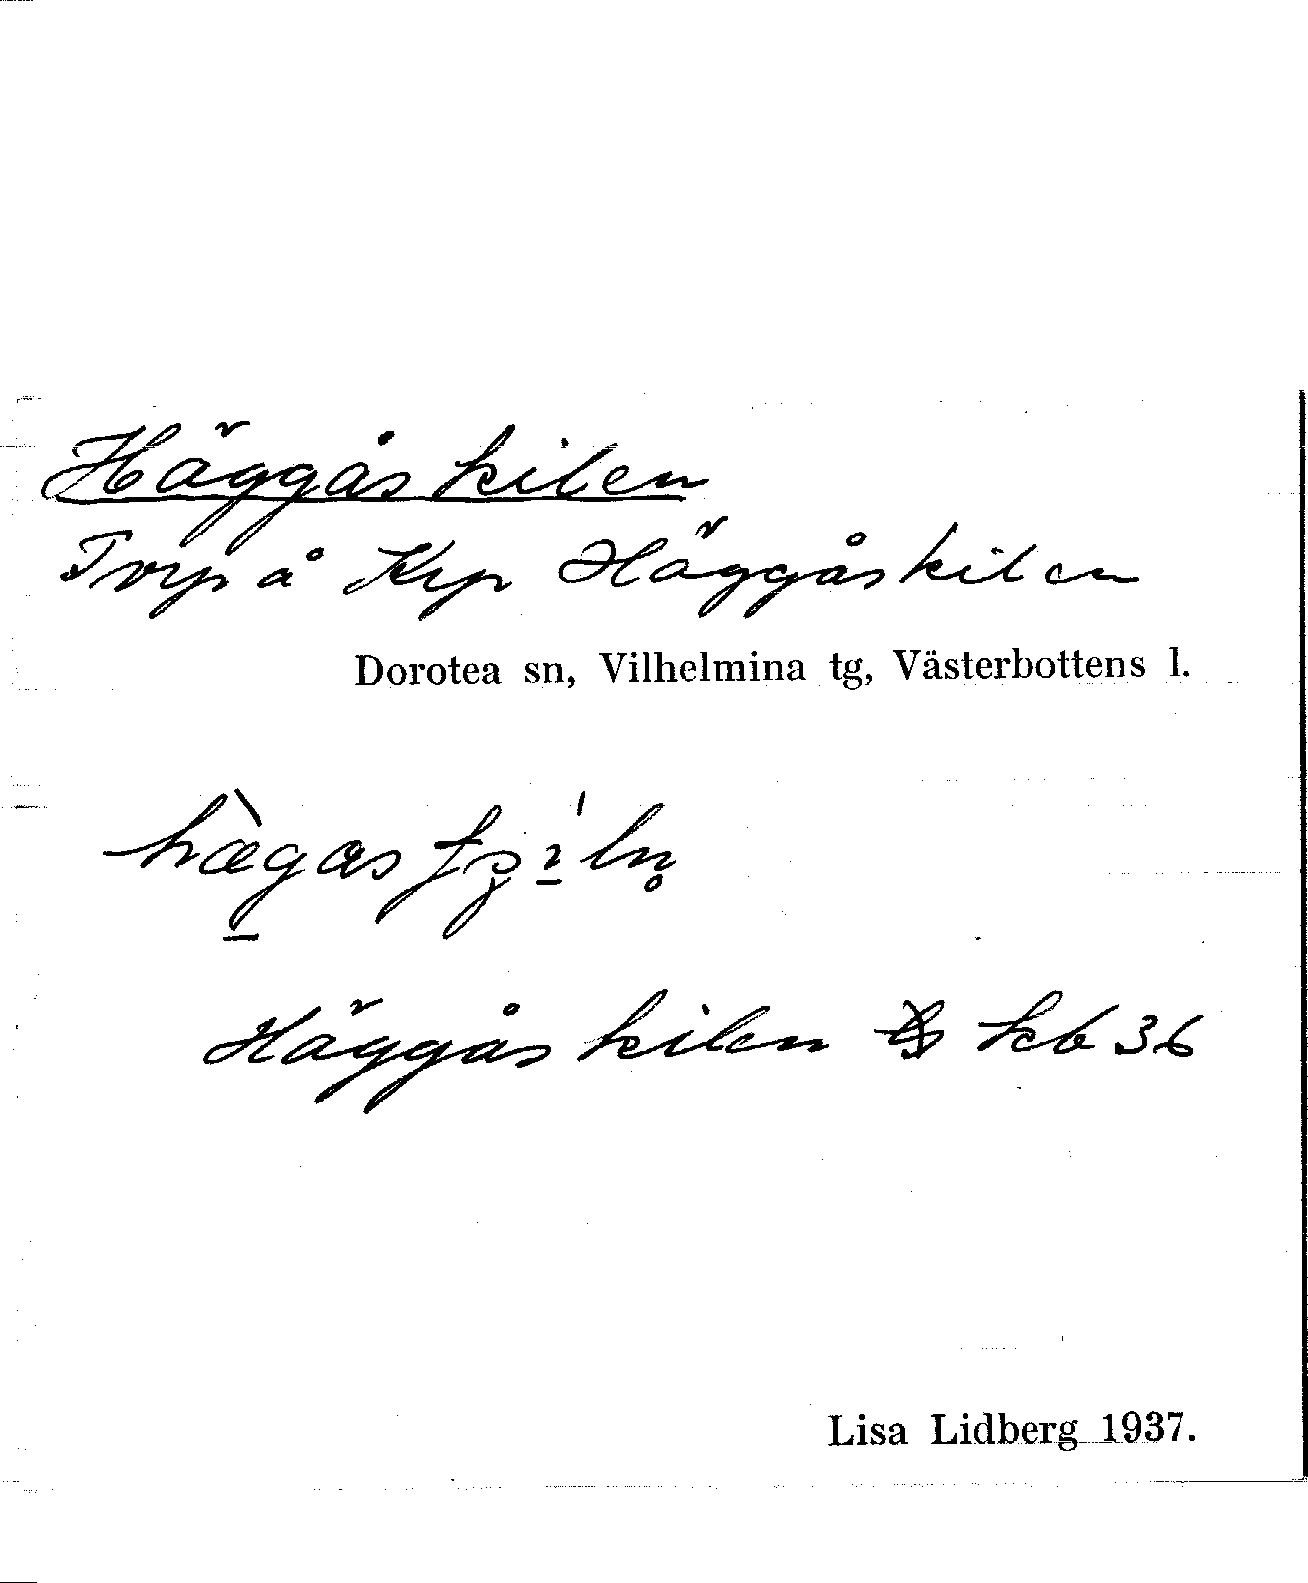 Häggåskilen
Tvp å Krp Häggåskilen
Dorotea sn, Vilhelmina tg, Västerbottens l.
Häggåskilen kb 36
Lisa Lidberg 1937.